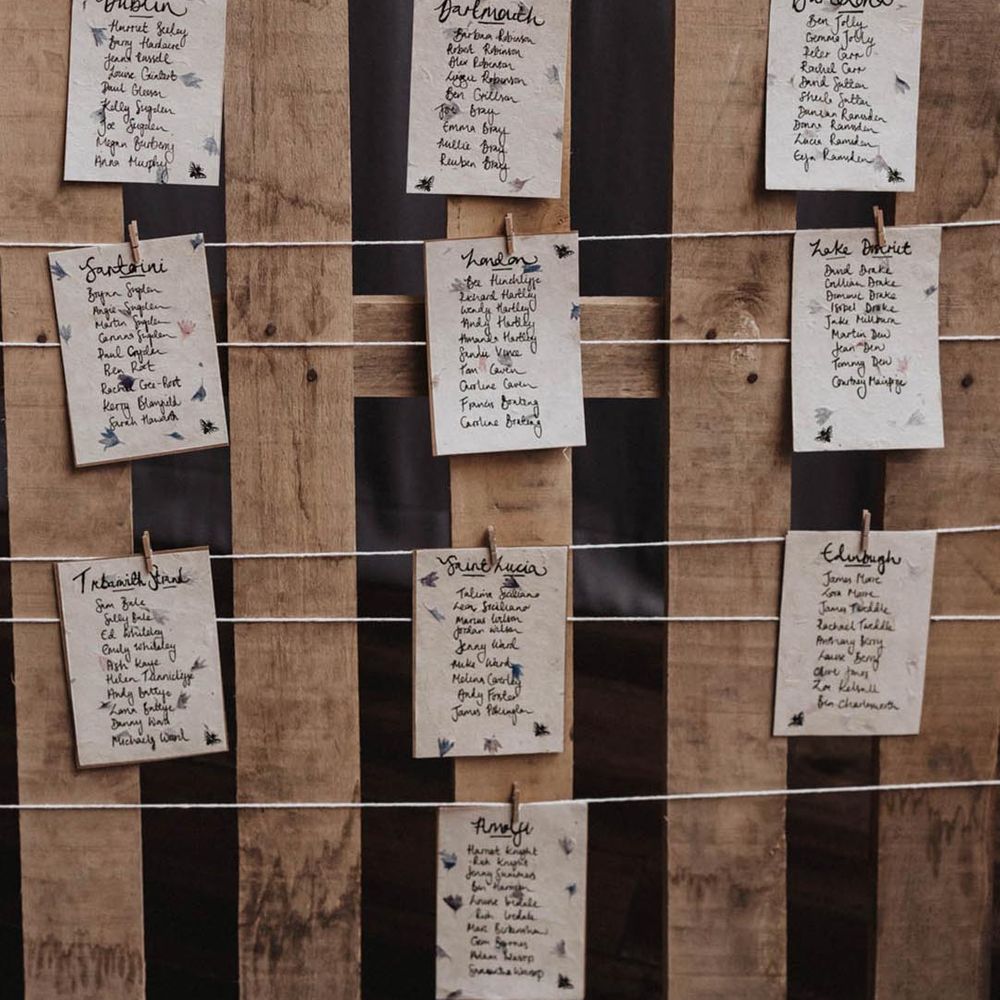 Dublin
Harriet Seeley
Barry Hardacre
Jenna Russell
Louise
Paul Gleeson
Kelly Sugden
Joe Sugden
Megan Burberry
Anna Murphy
Dartmouth
Barbara Robinson
Robert Robinson
Alex Robinson
Lizzie Robinson
Ben
Joe Bray
Emma Bray
Nellie Bray
Reuben Bray
Ben Jolly
Gemma Jolly
Peter Carr
Rachel Carr
David Sutton
Sheila Sutton
Duncan Ramsden
Donna Ramsden
Lucia Ramsden
Ramsden
Santorini
Bryan Sugden
Angie Sugden
Martin Sugden
Sugden
Paul
Ben Root
Rachel Root
Kerry
Sarah Haworth
London
Bee Hinchliffe
Richard Hartley
Wendy Hartley
Andy Hartley
Amanda Hartley
Sandie Vince
Tom Caven
Caroline Caven
Francis
Caroline
Lake District
David Drake
Gillian Drake
Dominic Drake
Isobel Drake
Jake Millburn
Martin Dew
Jean Dew
Tommy Dew
Courtney
Trebarwith Strand
Sam Bale
Sally Bale
Ed Whiteley
Emily Whiteley
Ash Kaye
Helen
Andy
Lana
Danny Ward
Michaela Ward
Saint Lucia
Talina Siciliano
Leon Siciliano
Marcus Wilson
Jordan Wilson
Jenny Ward
Luke Ward
Melina
Andy Foster
James
Edinburgh
James Moore
Zara Moore
James Tweddle
Rachael Tweddle
Anthony Berry
Louise Berry
Clive Jones
Zoe Kelsall
Ben Charlesworth
Amalfi
Harriet Knight
Rob Knight
Jenny Summers
Ben Harrison
Louise Iredale
Rich Iredale
Marc
Gem Barnes
Adam
Samantha